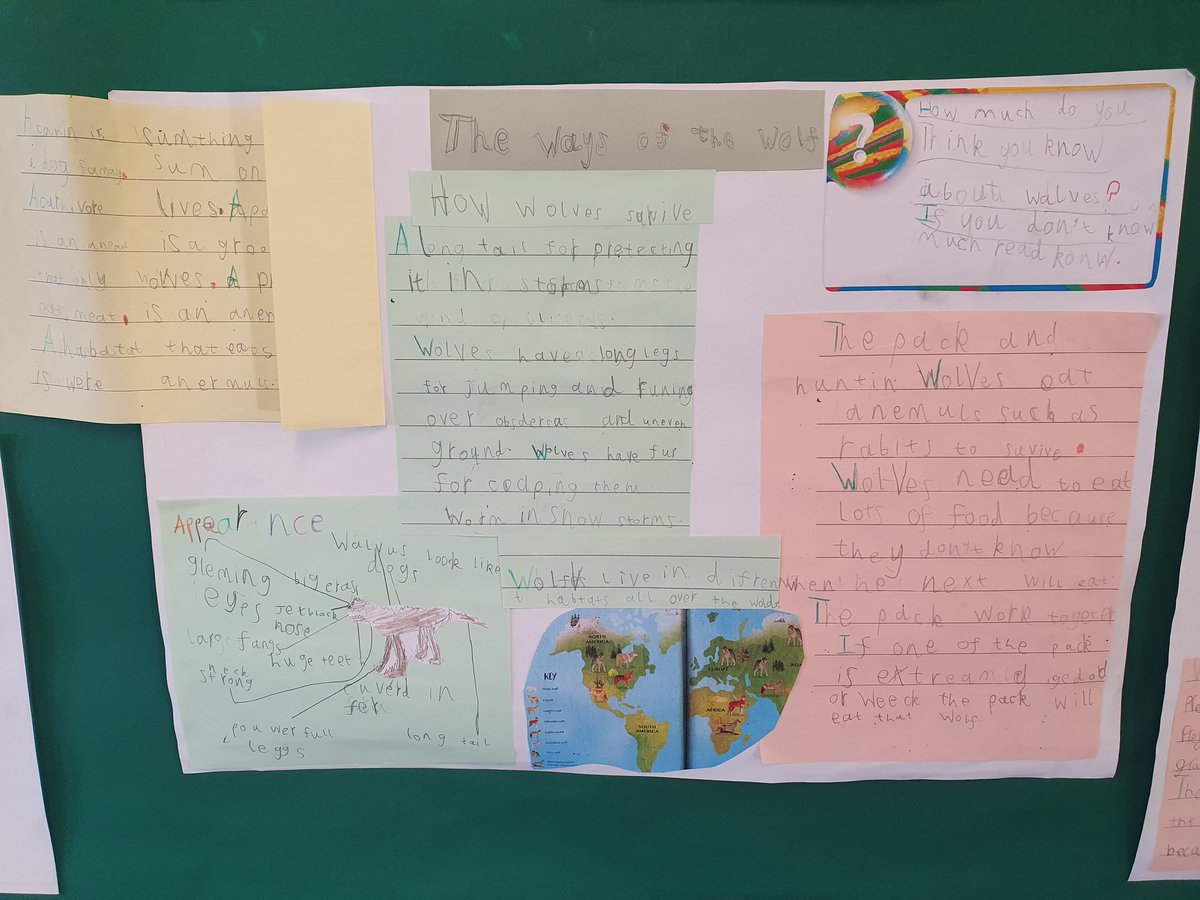 The Ways of the Wolf
How much do you
Think you know
about walves?
If you don't know
much read konw.
is
sumthing
i dog famaly.
sum on
Acarnivore
lives. A
is an anemul
is a groe
that only
wolves. A
eat meat.
is an anem
A habatat
that eats
is were
anermuls.
How wolves surive
A long tail for pretecting
it in
wind
Wolves have a long legs
for jumping and runing
over and uneven
ground. Wolves have fur
for them
worm in snow storms.
Appearince
Walvus loock like
dogs
gleming
eyes
big
Jet black
nose
large fangs
huge teet
neck
strong
cuverd in
fer
pouwerfull
leggs
long tail
Wolfs live in difren
t habtats all over the
NORTH
AMERICA
SOUTH
AMERICA
EUROPE
AFRICA
ASIA
KEY
The pack and
huntin Wolves eat
anemuls such as
rabits to surive.
Wolves need to eat
Lots of food because
they don't know
when he next will eat.
The pack work together
If one of the pack
is extreamly
or weeck the pack will
eat that wolf.
Ple
Ples
The
the
beca